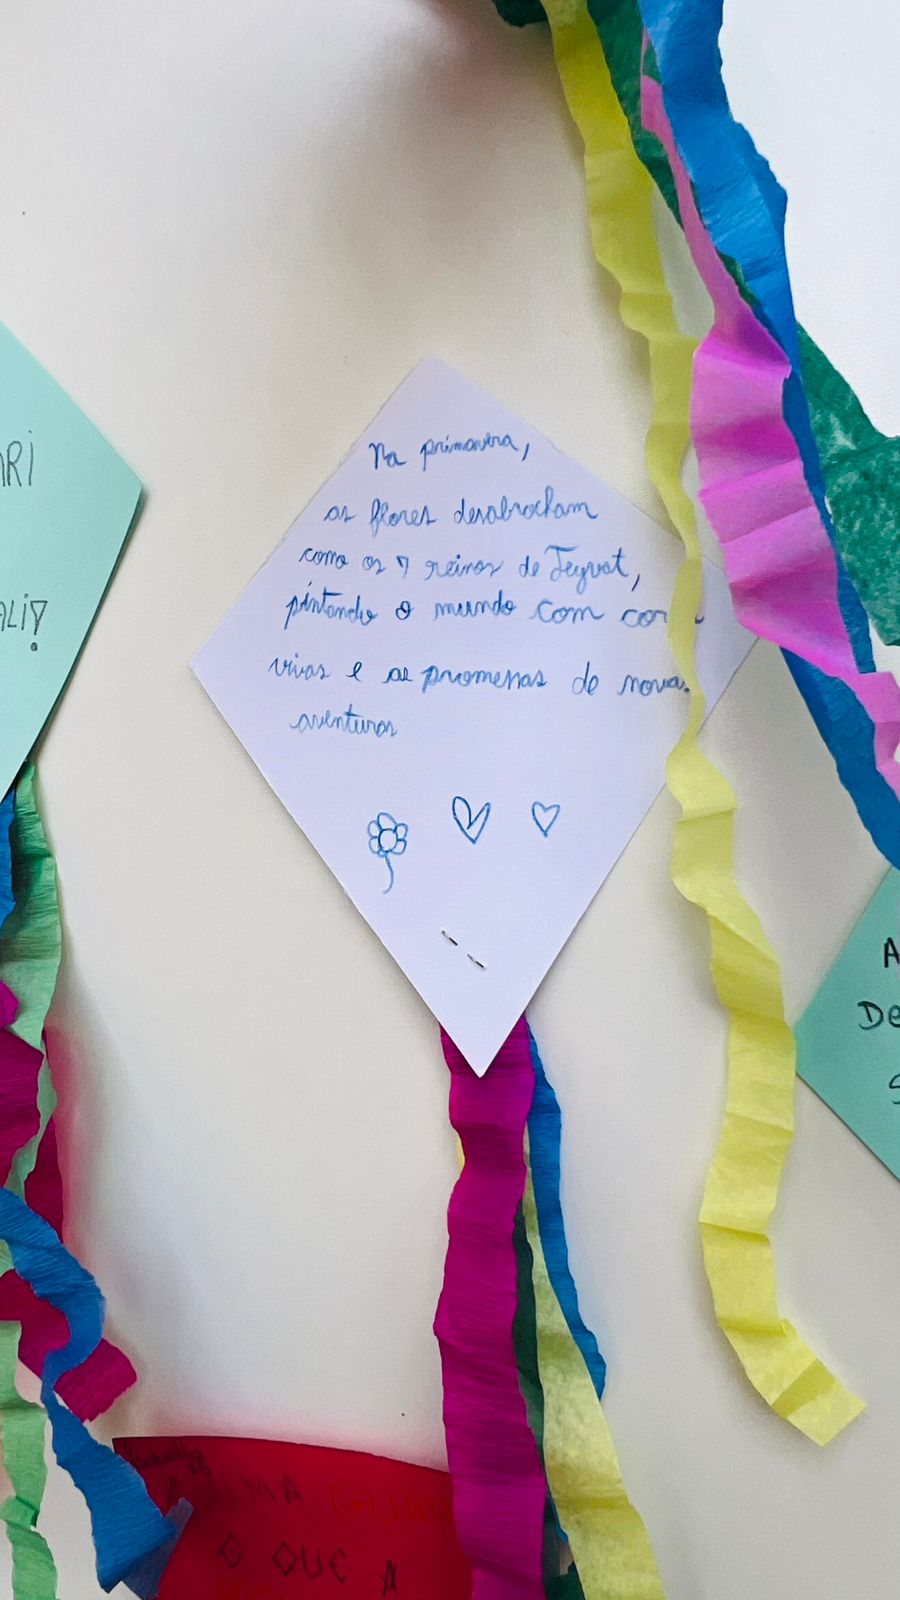 ARI
ALI!
Na primavera,
as flores desabrocham
como os 7 reinos de Teyvat,
pintando o mundo com
vivas e as promessas de novas
aventuras
A
DE
S
Isabella
A
O QUE A